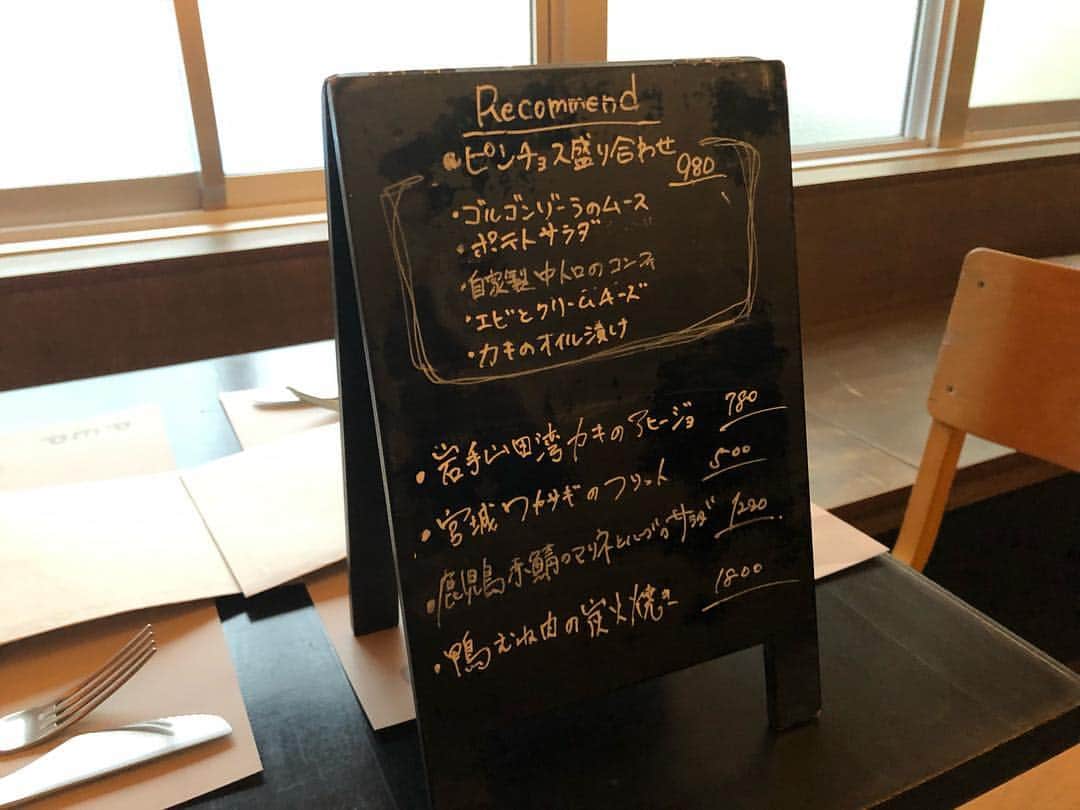 Recommend
・ピンチョス盛り合わせ 980
・ゴルゴンゾーラのムース
・ポテトサラダ
・自家製 のコンフィ
・エビとクリームチーズ
・カキのオイル漬け
・岩手山田湾カキのアヒージョ 780
・宮城ワカサギのフリット 500
・鹿児島 鯖のマリネとハーブのサラダ
・鴨むね肉の炭火焼き 1800